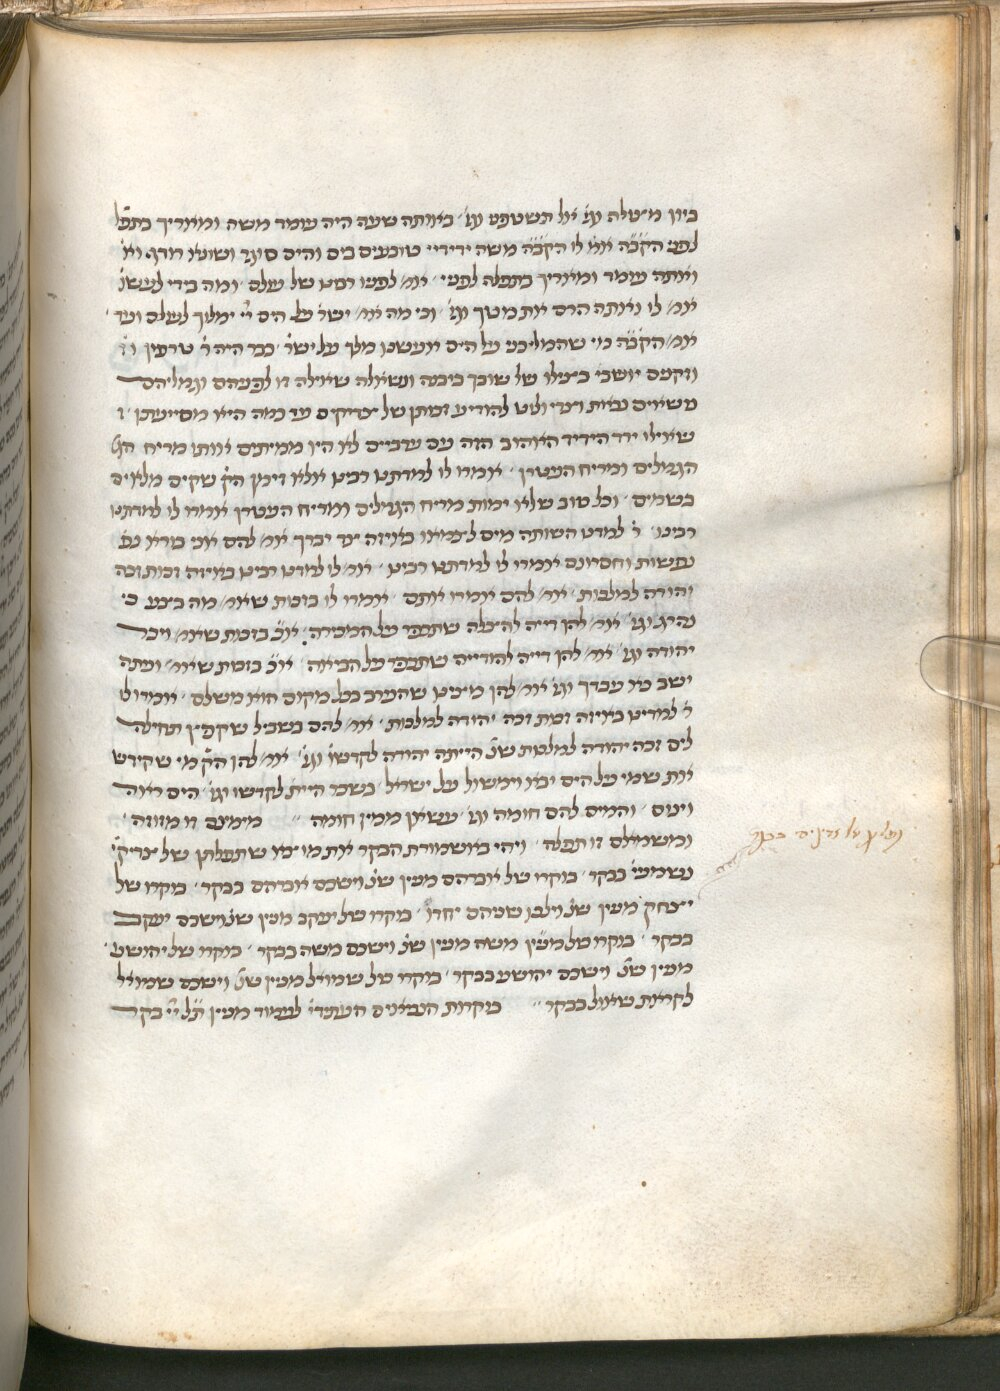 ביון מצולה וג׳ אל תשטפני וג׳ באותה שעה היה עומד משה ומאריך בתפל׳
לפני הק״בה אמ׳ לו הק״בה משה ידידיי טובעים בים והים סוגר ושונא רודף וא׳
ואתה עומד ומאריך בתפלה לפני׳ אמ׳ לפניו רבונו של עולם ׳ ומה בידי לעשו׳
אמ׳ לו ואתה הרם את מטך וג׳ ׳ וכי מה אמ׳ ישר׳ על הים י״י ימלוך לעולם ועד ׳
אמ׳ הק״בה מי שהמליכני על הים אעשנו מלך על ישר׳ כבר היה ר׳ טרפון ור׳
וזקנים יושבי׳ בצילו של שובך ביבנה ונשאלה שאילה זו לפניהם וגמליהם
נושאים נכאת וצרי ולוט להודיע זכותן של צדיקים עד כמה היא מסייעתן ׳
שאילו ירד הידיד האהוב הזה עם ערביים לא היו ממיתים אותו מריח
הגמלים ומריח העטרן ׳ אמרו לו למדתנו רבינו אלא זימן הק׳ שקים מלאים
בשמים ׳ וכל טוב שלא ימות מריח הגמלים ומריח העטרן אמרו לו למדתנו
רבינו׳ ר׳ למדנו השותה מים לצמאו באיזה צד יברך אמ׳ להם אני בורא נפ׳
נפשות וחסרונם אמרו לו למדתנו רבינו ׳ אמ׳ לו למדנו רבינו באיזה זכות זכה
יהודה למלכות׳ אמ׳ להם אמרו אתם ׳ אמרו לו בזכות שאמ׳ מה בצע כי
נהרוג וג׳ אמ׳ להן דייה להצלה שתכפר על המכירה׳ א״כ בזכות שאמ׳ ויכר
יהודה וג׳ אמ׳ להן דייה להודייה שתכפר על הביאה ׳ א״כ בזכות שאמ׳ ועתה
ישב נא עבדך וג׳ אמ׳ להן מצינו שהערב בכל מקום הוא משלם ׳ אמרו לו
ר׳ למדינו באיזה זכות זכה יהודה למלכות׳ אמ׳ להם בשביל שקפץ תחילה
לים זכה יהודה למלכות שנ׳ הייתה יהודה לקדשו וג׳ אמ׳ להן הק׳ מי שקידש
את שמי על הים יבא וימשול על ישראל׳ בשכר היית׳ לקדשו וג׳ הים ראה
וינוס ׳ והמים להם חומה וג׳ עשאן כמין חומה ״ מימינם זו מזוזה ׳
ומשמאלם זו תפלה׳ ויהי באשמורת הבקר את מוצא שתפלתן של צדיקי׳
נשמעי׳ בבקר׳ בוקרו של אברהם מנין שנ׳ וישכם אברהם בבקר׳ בוקרו של
יצחק מנין שנ׳ וילכו שניהם יחדו׳ בוקרו של יעקב מנין שנ׳ וישכם יעקב
בבקר׳ בוקרו של משה מנין שנ׳ וישכם משה בבקר׳ בוקרו של יהושע׳
מנין שנ׳ וישכם יהושע בבקר׳ בוקרו של שמואל מנין שנ׳ וישכם שמואל
לקראת שאול בבקר״ בוקרות הנביאים העתידי׳ לעמוד מנין ת״ל י״י בקר